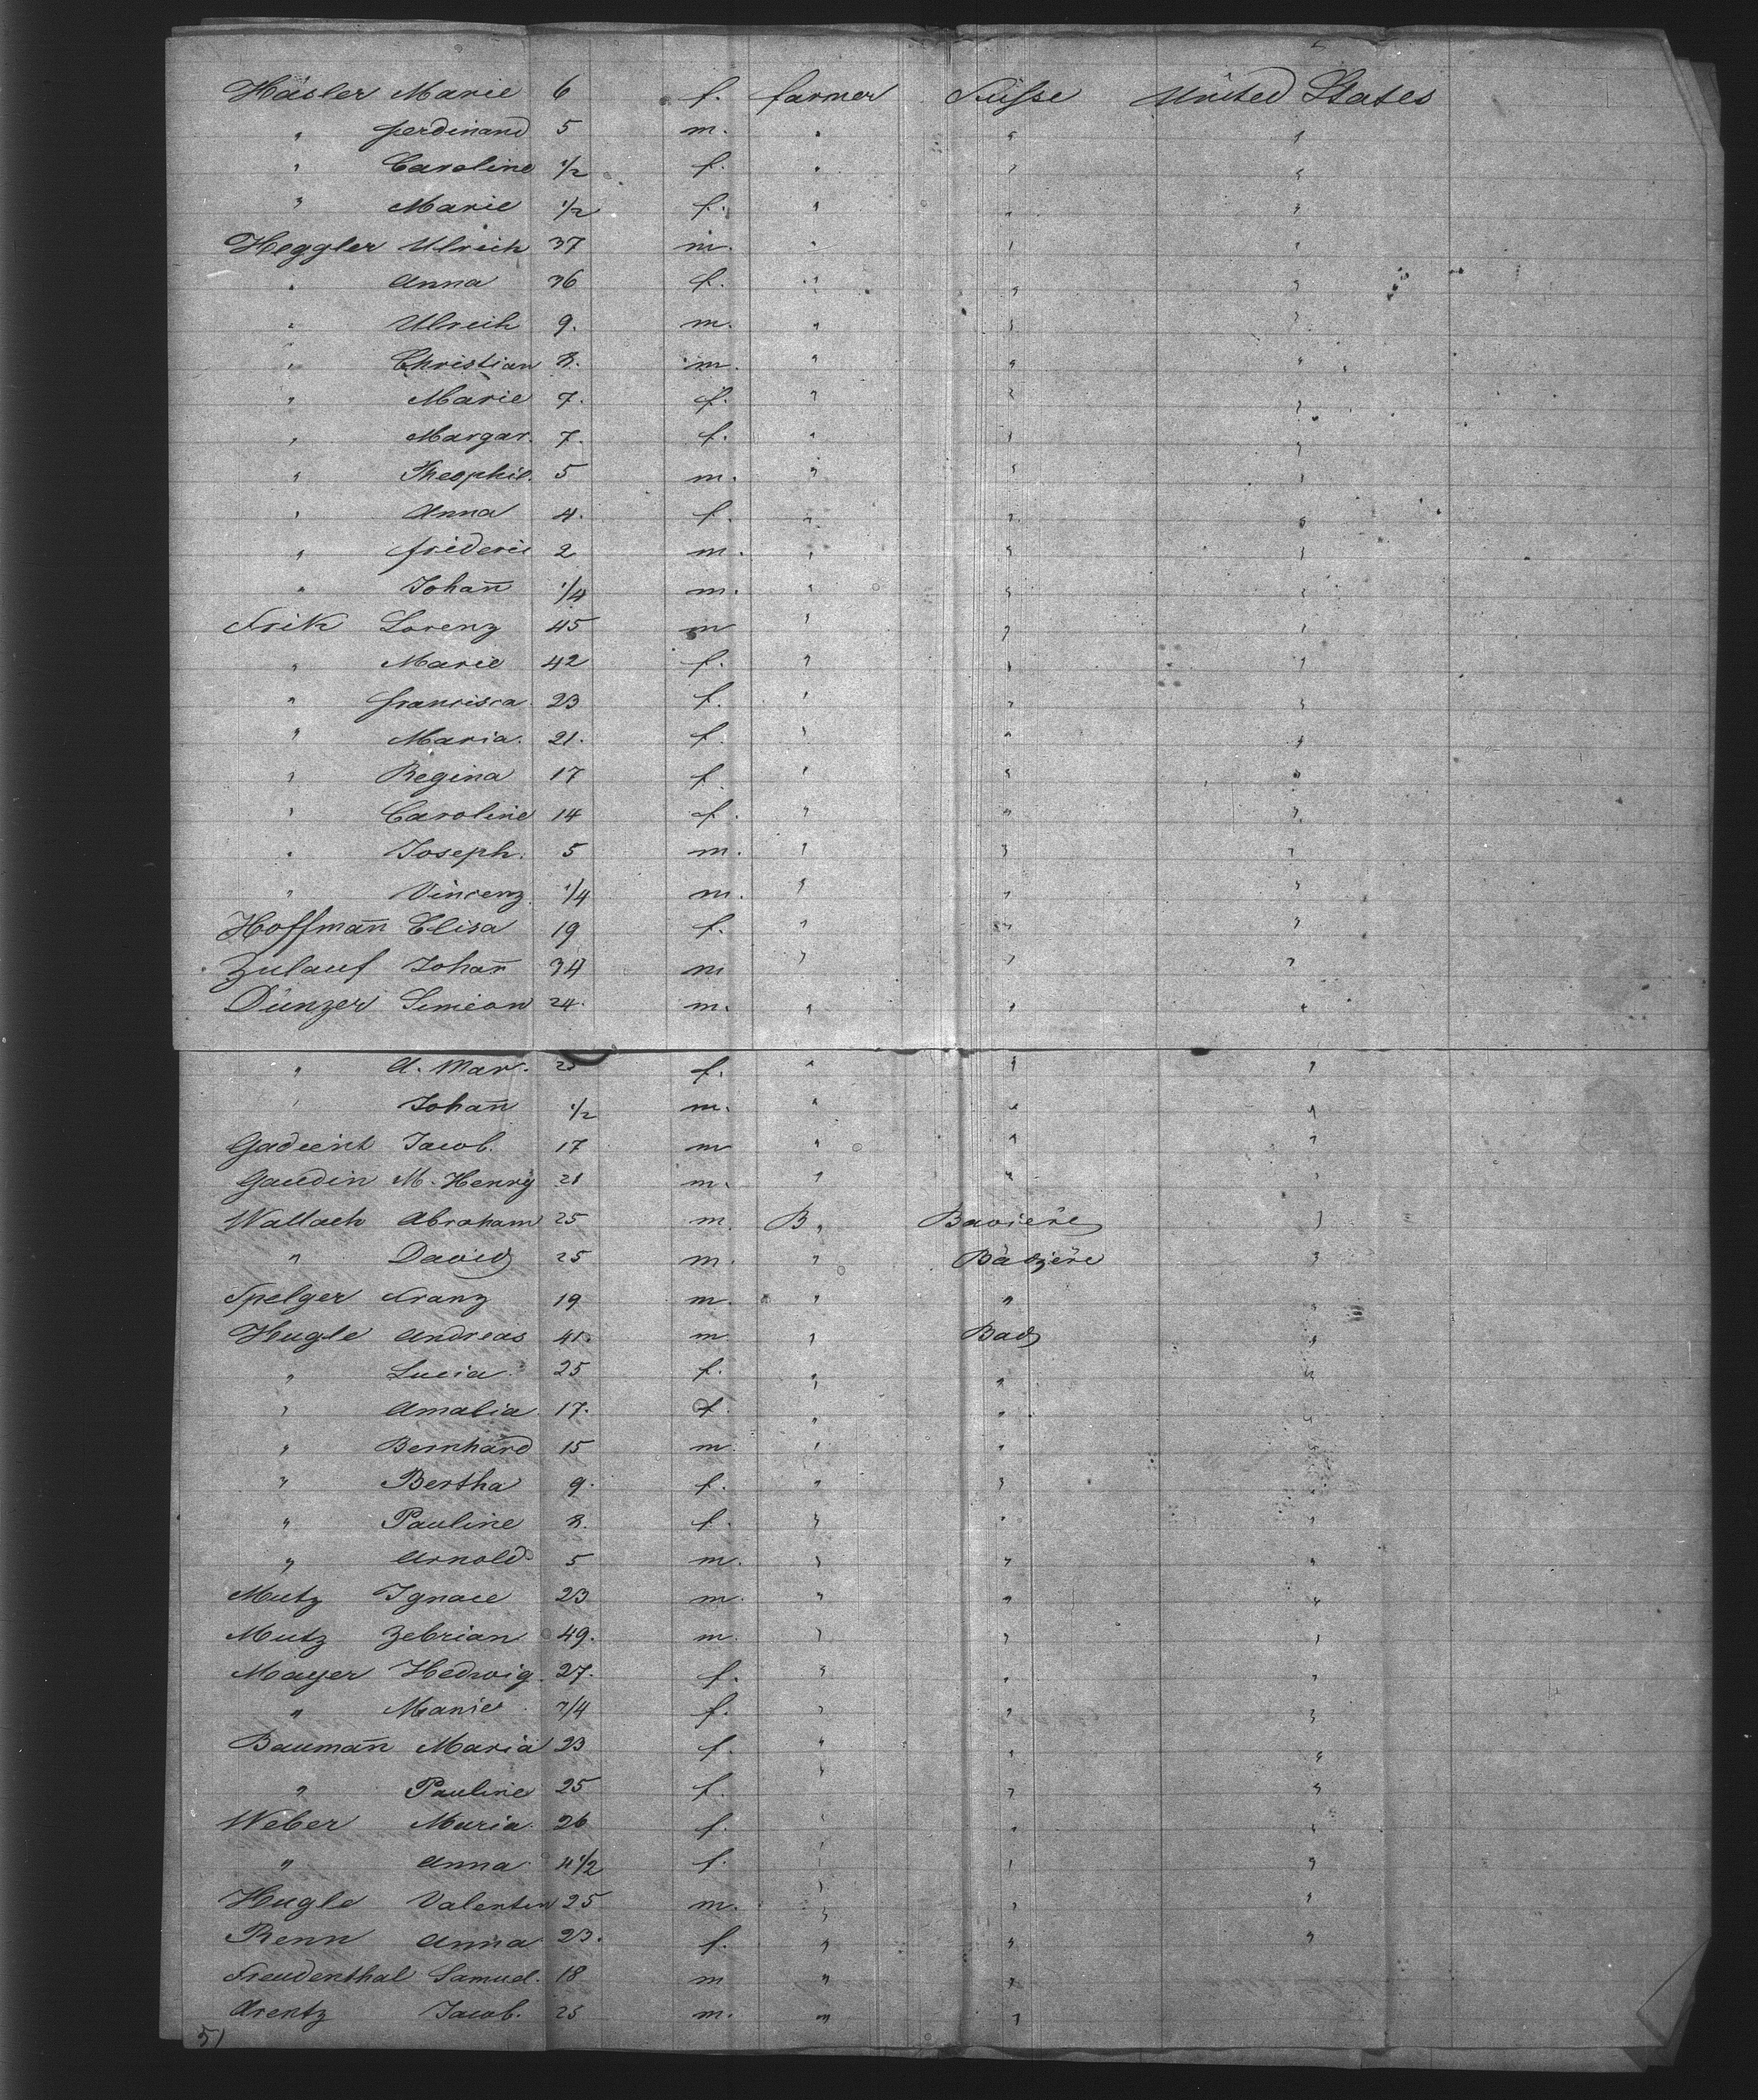 Häsler Marie 6 f. farmer Suisse United States
" ferdinand 5 m. " " "
" Caroline 1/2 f. " " "
" Marie 1/2 f. " " "
Heggler Ulrich 37 m. " " "
" Anna 36 f. " " "
" Ulrich 9. m. " " "
" Christian 8. m. " " "
" Marie 7. f. " " "
" Margar. 7. f. " " "
" Theophil. 5 m. " " "
" Anna 4. f. " " "
" frideric 2 m. " " "
" Johan̄ 1/4 m. " " "
Frik Lorenz 45 m " " "
" Marie 42 f. " " "
" francisca 23 f. " " "
" Maria. 21. f. " " "
" Regina 17 f. " " "
" Caroline 14 f. " " "
" Joseph. 5 m. " " "
" Vincenz 1/4 m. " " "
Hoffman̄ Elisa 19 f. " " "
Zulauf Johan̄ 34 m " " "
Dünzer Simeon 24. m. " " "
" A. Mar. f. " " "
" Johan̄ 1/2 m. " " "
Gadient Jacob. 17 m " " "
Gaudin M. Henry 21 m. " " "
Wallach Abraham 25 m. B " Bavière "
" David 25 m. " "
Spelger Franz 19 m. " " "
Hugle Andreas 41. m " Bad "
" Lucia. 25 f. " " "
" Amalia. 17. f. " " "
" Bernhard 15 m. " " "
" Bertha 9. f. " " "
" Pauline 8. f. " " "
" Arnold 5 m. " " "
Mutz Ignace 23 m. " " "
Mutz Zebrian 49. m. " " "
Maayer Hedwig. 27. f. " " "
" Marie 3/4 f. " " "
Bauman̄ Maria 23 f. " " "
" Pauline 25 f. " " "
Weber Maria. 26 f. " " "
" Anna 4 1/2 f. " " "
Hugle Valentin 25 m. " " "
Renn Anna 23. f. " " "
Freudenthal Samuel. 18 m " "
Arentz Jacob. 25 m. " "
51